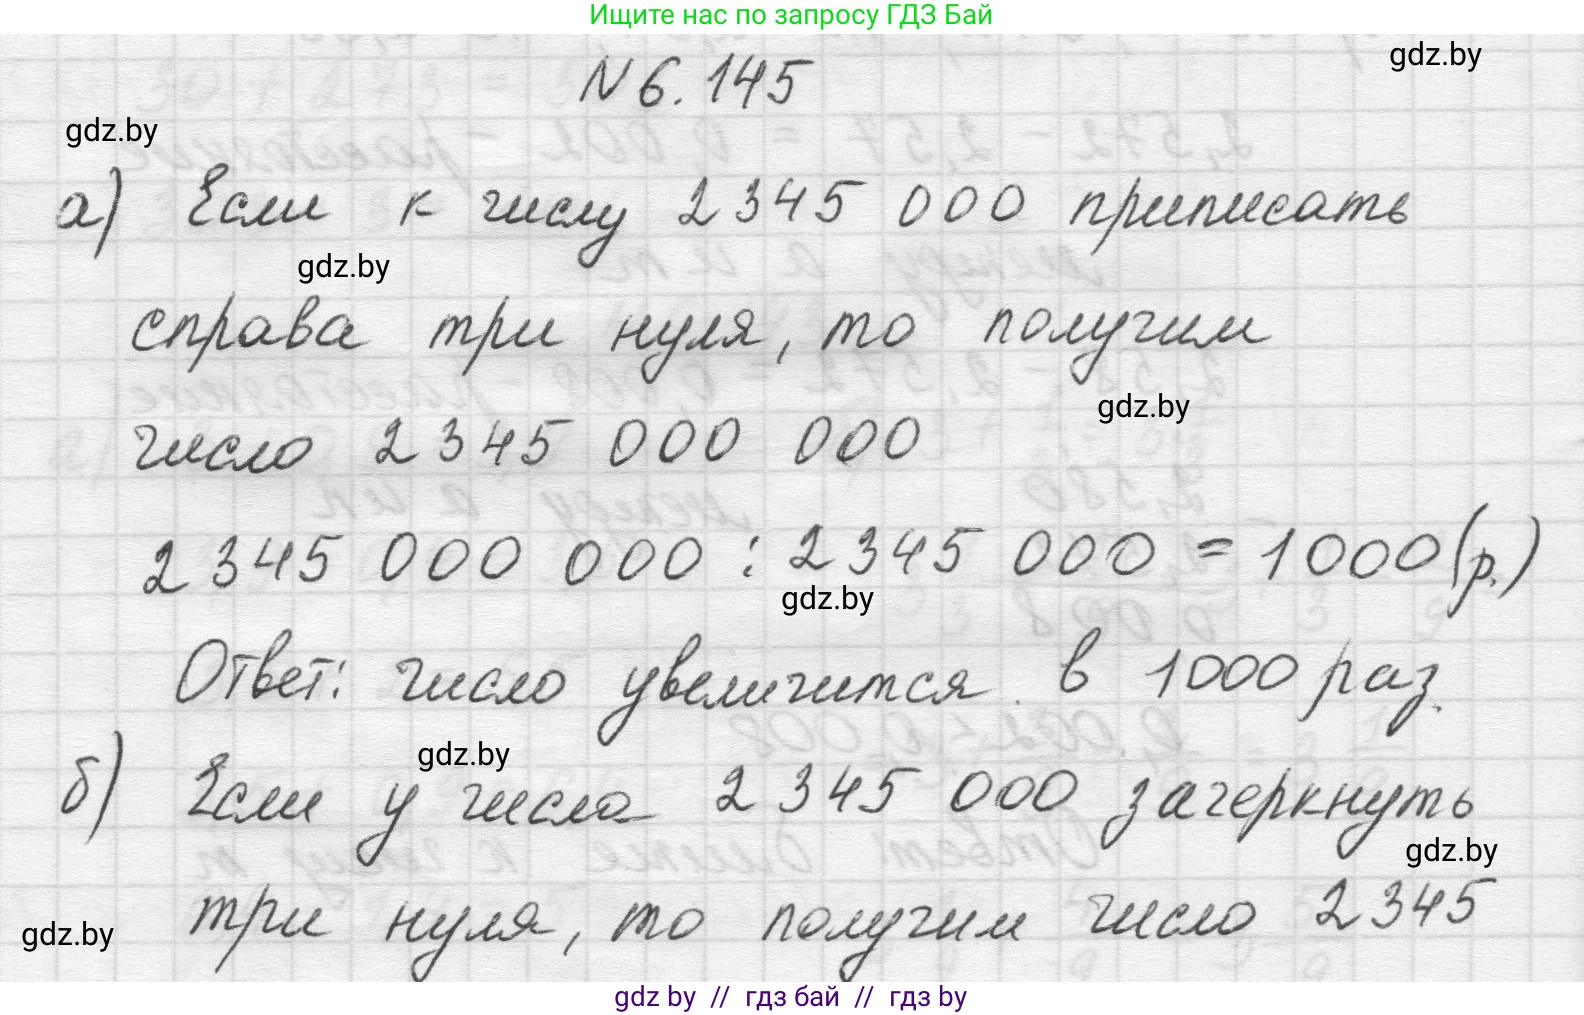 Ищите нас по запросу ГДЗ Бай
gdz.by
N 6.145
gdz.by
а) Если к числу 2345 000 приписать
gdz.by
справа три нуля, то получим
gdz.by
число 2345 000 000
2345 000 000 : 2345 000 = 1000 (р.)
gdz.by
Ответ: число увеличится в 1000 раз.
gdz.by
б) Если у числа 2345 000 зачеркнуть
gdz.by
три нуля, то получим число 2345
gdz.by
gdz by // гдз бай // гдз by